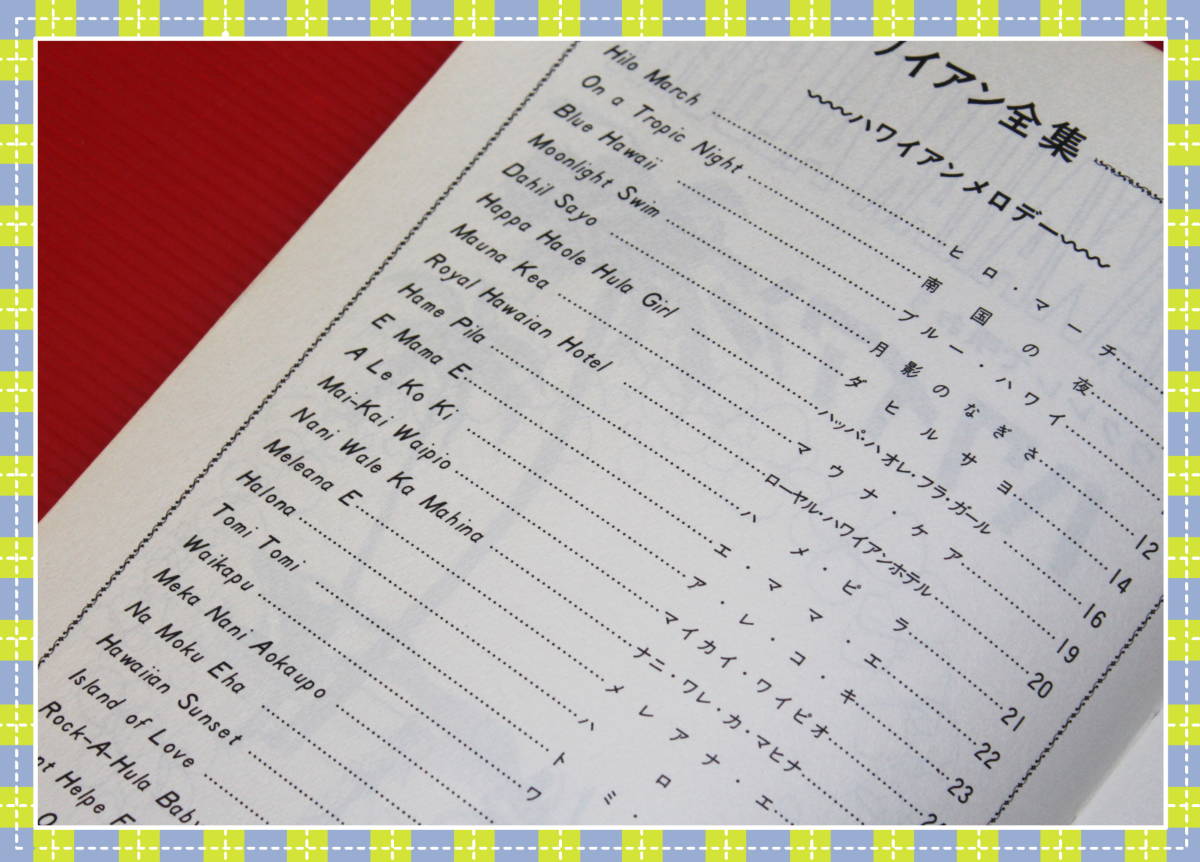 イアン全集
～～ハワイアンメロデー～～
Hilo March ヒロ・マーチ
On a Tropic Night 南国の夜
Blue Hawaii ブルー・ハワイ
Moonlight Swim 月影のなぎさ 12
Dahil Sayo ダヒルサヨ 14
Happa Haole Hula Girl ハッパ・ハオレ・フラ・ガール 16
Mauna Kea マウナ・ケア 19
Royal Hawaian Hotel ローヤル・ハワイアンホテル 20
Hame Pila ハメ・ピラ 21
E Mama E エ・ママ・エ 22
A Le Ko Ki ア・レ・コ・キ 23
Mai-Kai Waipio マイカイ・ワイピオ
Nani Wale Ka Mahina ナニ・ワレ・カ・マヒナ
Meleana E メレアナ・エ
Halona ハロ
Tomi Tomi トミ・
Waikapu ワ
Meka Nani Aokaupo
Na Moku Eha
Hawaiian Sunset
Island of Love
Rock-A-Hula Baby
nt Helpe F